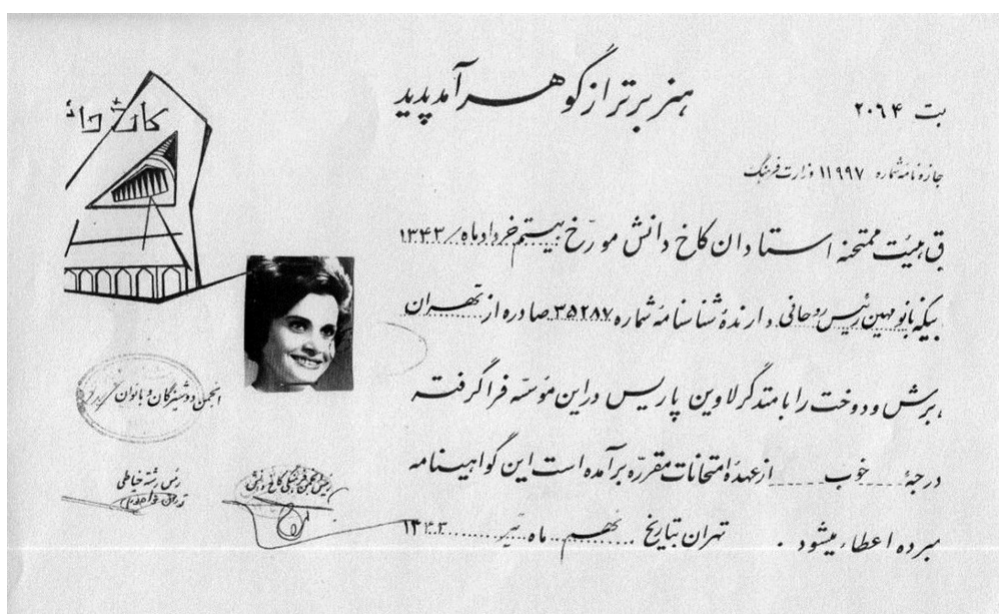 هنر برتر از گوهر آمد پدید
بت ۲۰۶۴
جازه نامه شماره ۱۱۹۹۷ وزارت فرهنگ
ق هیئت ممتحنه استادان کاخ دانش مورّخ بیستم خرداد ماه ۱۳۴۳
یکه بانو مهین رئیس روحانی دارندهٔ شناسنامهٔ شماره ۳۵۲۸۷ صادره از تهران
برش و دوخت را با متد گرلاوین پاریس در این مؤسّسه فرا گرفته
درجهٔ خوب از عهدهٔ امتحانات مقرّره برآمده است این گواهینامه
مبرده اعطاء میشود . تهران بتاریخ نهم ماه تیر ۱۳۴۳
کاخ دانـ
انجمن دوشیزگان و بانوان
رئیس رشته خیاطی